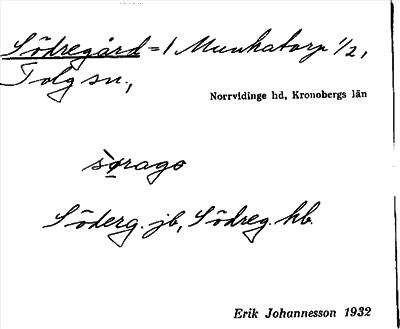 Södregård = 1 Munkatorp 1/2,
Tolg sn.,
Norrvidinge hd, Kronobergs län
sørago
Söderg. jb, Södreg. hb.
Erik Johannesson 1932